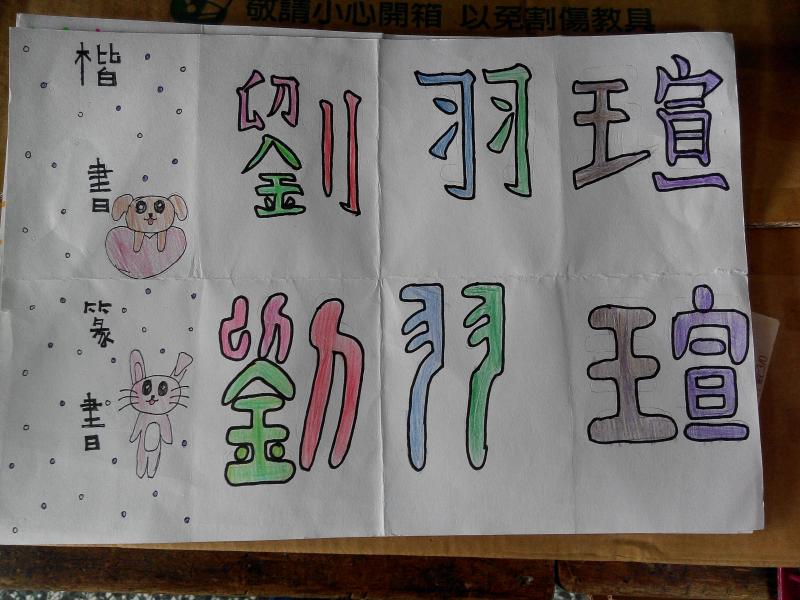 敬請小心開箱 以免割傷教具
楷書
劉羽瑄
篆書
劉羽瑄